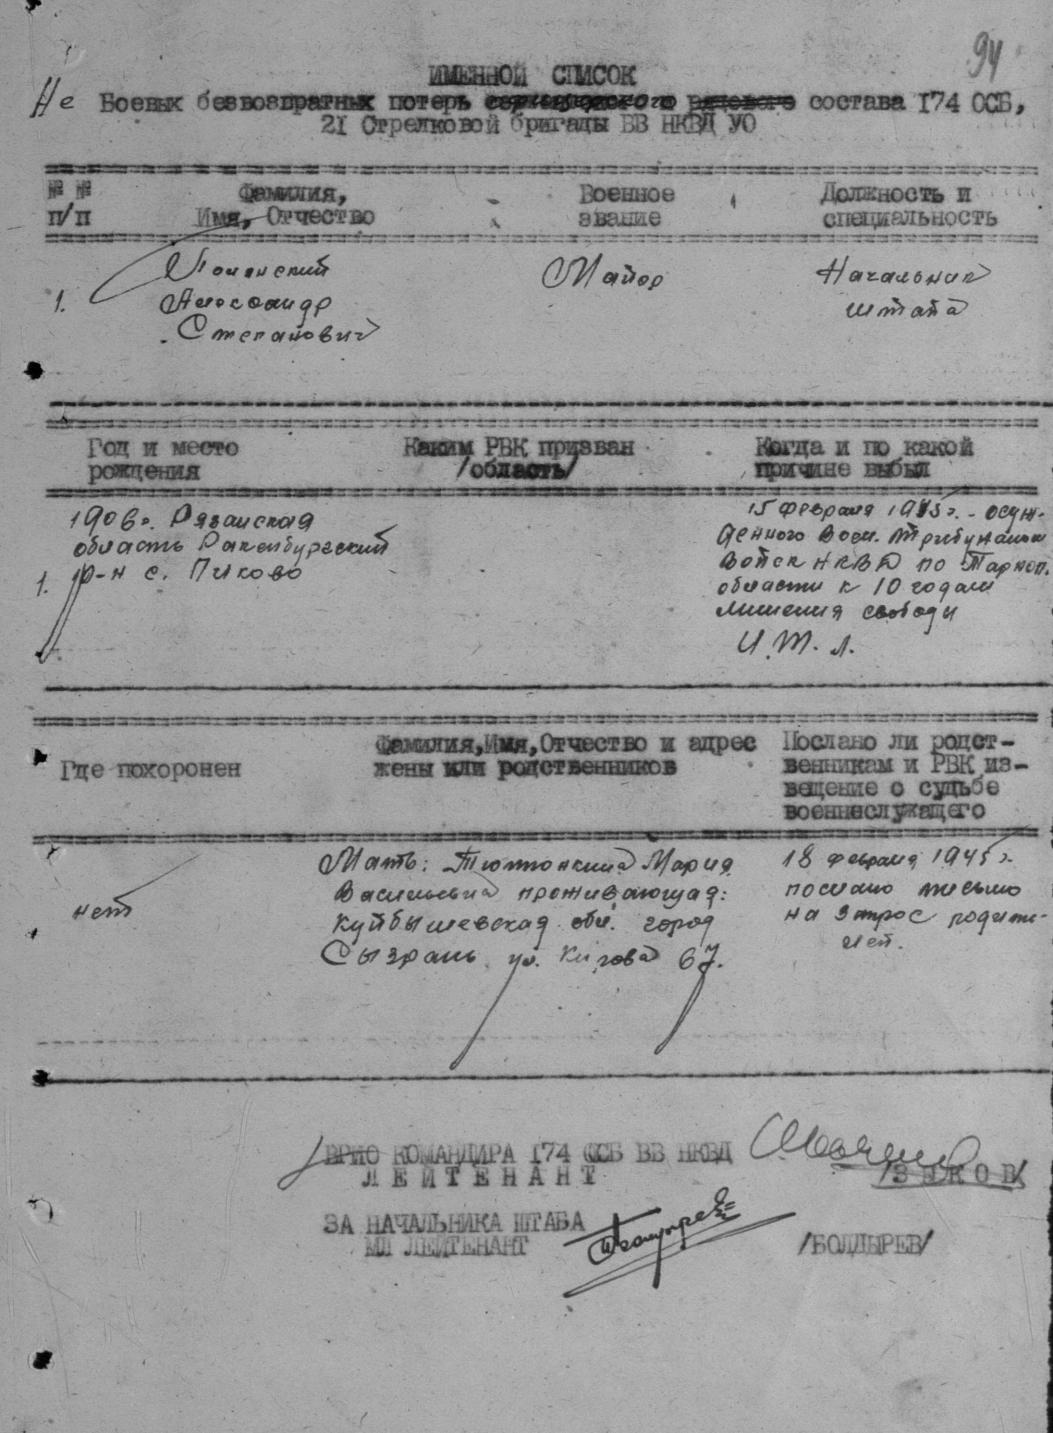 94
ИМЕННОЙ СПИСОК
Не Боевых безвозвратных потерь состава 174 ОСБ,
21 Стрелковой бригады ВВ НКВД УО
№ № Фамилия, Военное Должность и
п/п Имя, Отчество звание специальность
Майор Начальник
1. Александр штаба
Степанович
Год и место Каким РВК призван Когда и по какой
рождения /область/ причине выбыл
1906г. Рязанская 15 февраля 1945г. - осуж-
область Раненбургский денного Воен. Трибуналом
1. р-н с. Войск НКВД по Тарноп.
области к 10 годам
лишения свободы
И.Т.Л.
Фамилия,Имя,Отчество и адрес Послано ли родст-
Где похоронен жены или родственников венникам и РВК из-
вещение о судьбе
военнеслужащего
Мать: Мария 18 февраля 1945г.
нет Васильевна проживающая: послано письмо
Куйбышевская обл. город на запрос родите-
Сызрань ул. Кирова 67. лей.
ВРИО КОМАНДИРА 174 ОСБ ВВ НКВД
ЛЕЙТЕНАНТ /ЗЫКОВ/
ЗА НАЧАЛЬНИКА ШТАБА
МЛ ЛЕЙТЕНАНТ /БОЛДЫРЕВ/